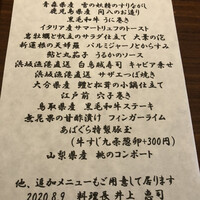 青森県産 雲の妖精のすりながし
鹿児島県産 岡八のお造り
黒毛和牛 うに巻き
イタリア産サマートリュフのトースト
岩牡蠣と帆立のサラダ仕立て 大葉の花
新蓮根の天婦羅 パルミジャーノとからすみ
鮎と丸茄子 うるかのソース
浜城漁港直送 白烏賊寿司 キャビア乗せ
浜城漁港直送 サザエつぼ焼き
大分県産 鱧と松茸の小鍋仕立て
江戸前 穴子巻き
鳥取県産 黒毛和牛ステーキ
無花果の甘酢漬け フィンガーライム
あぱぐら特製豚玉
(牛すじ九条葱卵+300円)
山梨県産 桃のコンポート
他、追加メニューもご用意して居ります
2020.8.9 料理長 井上 昌司